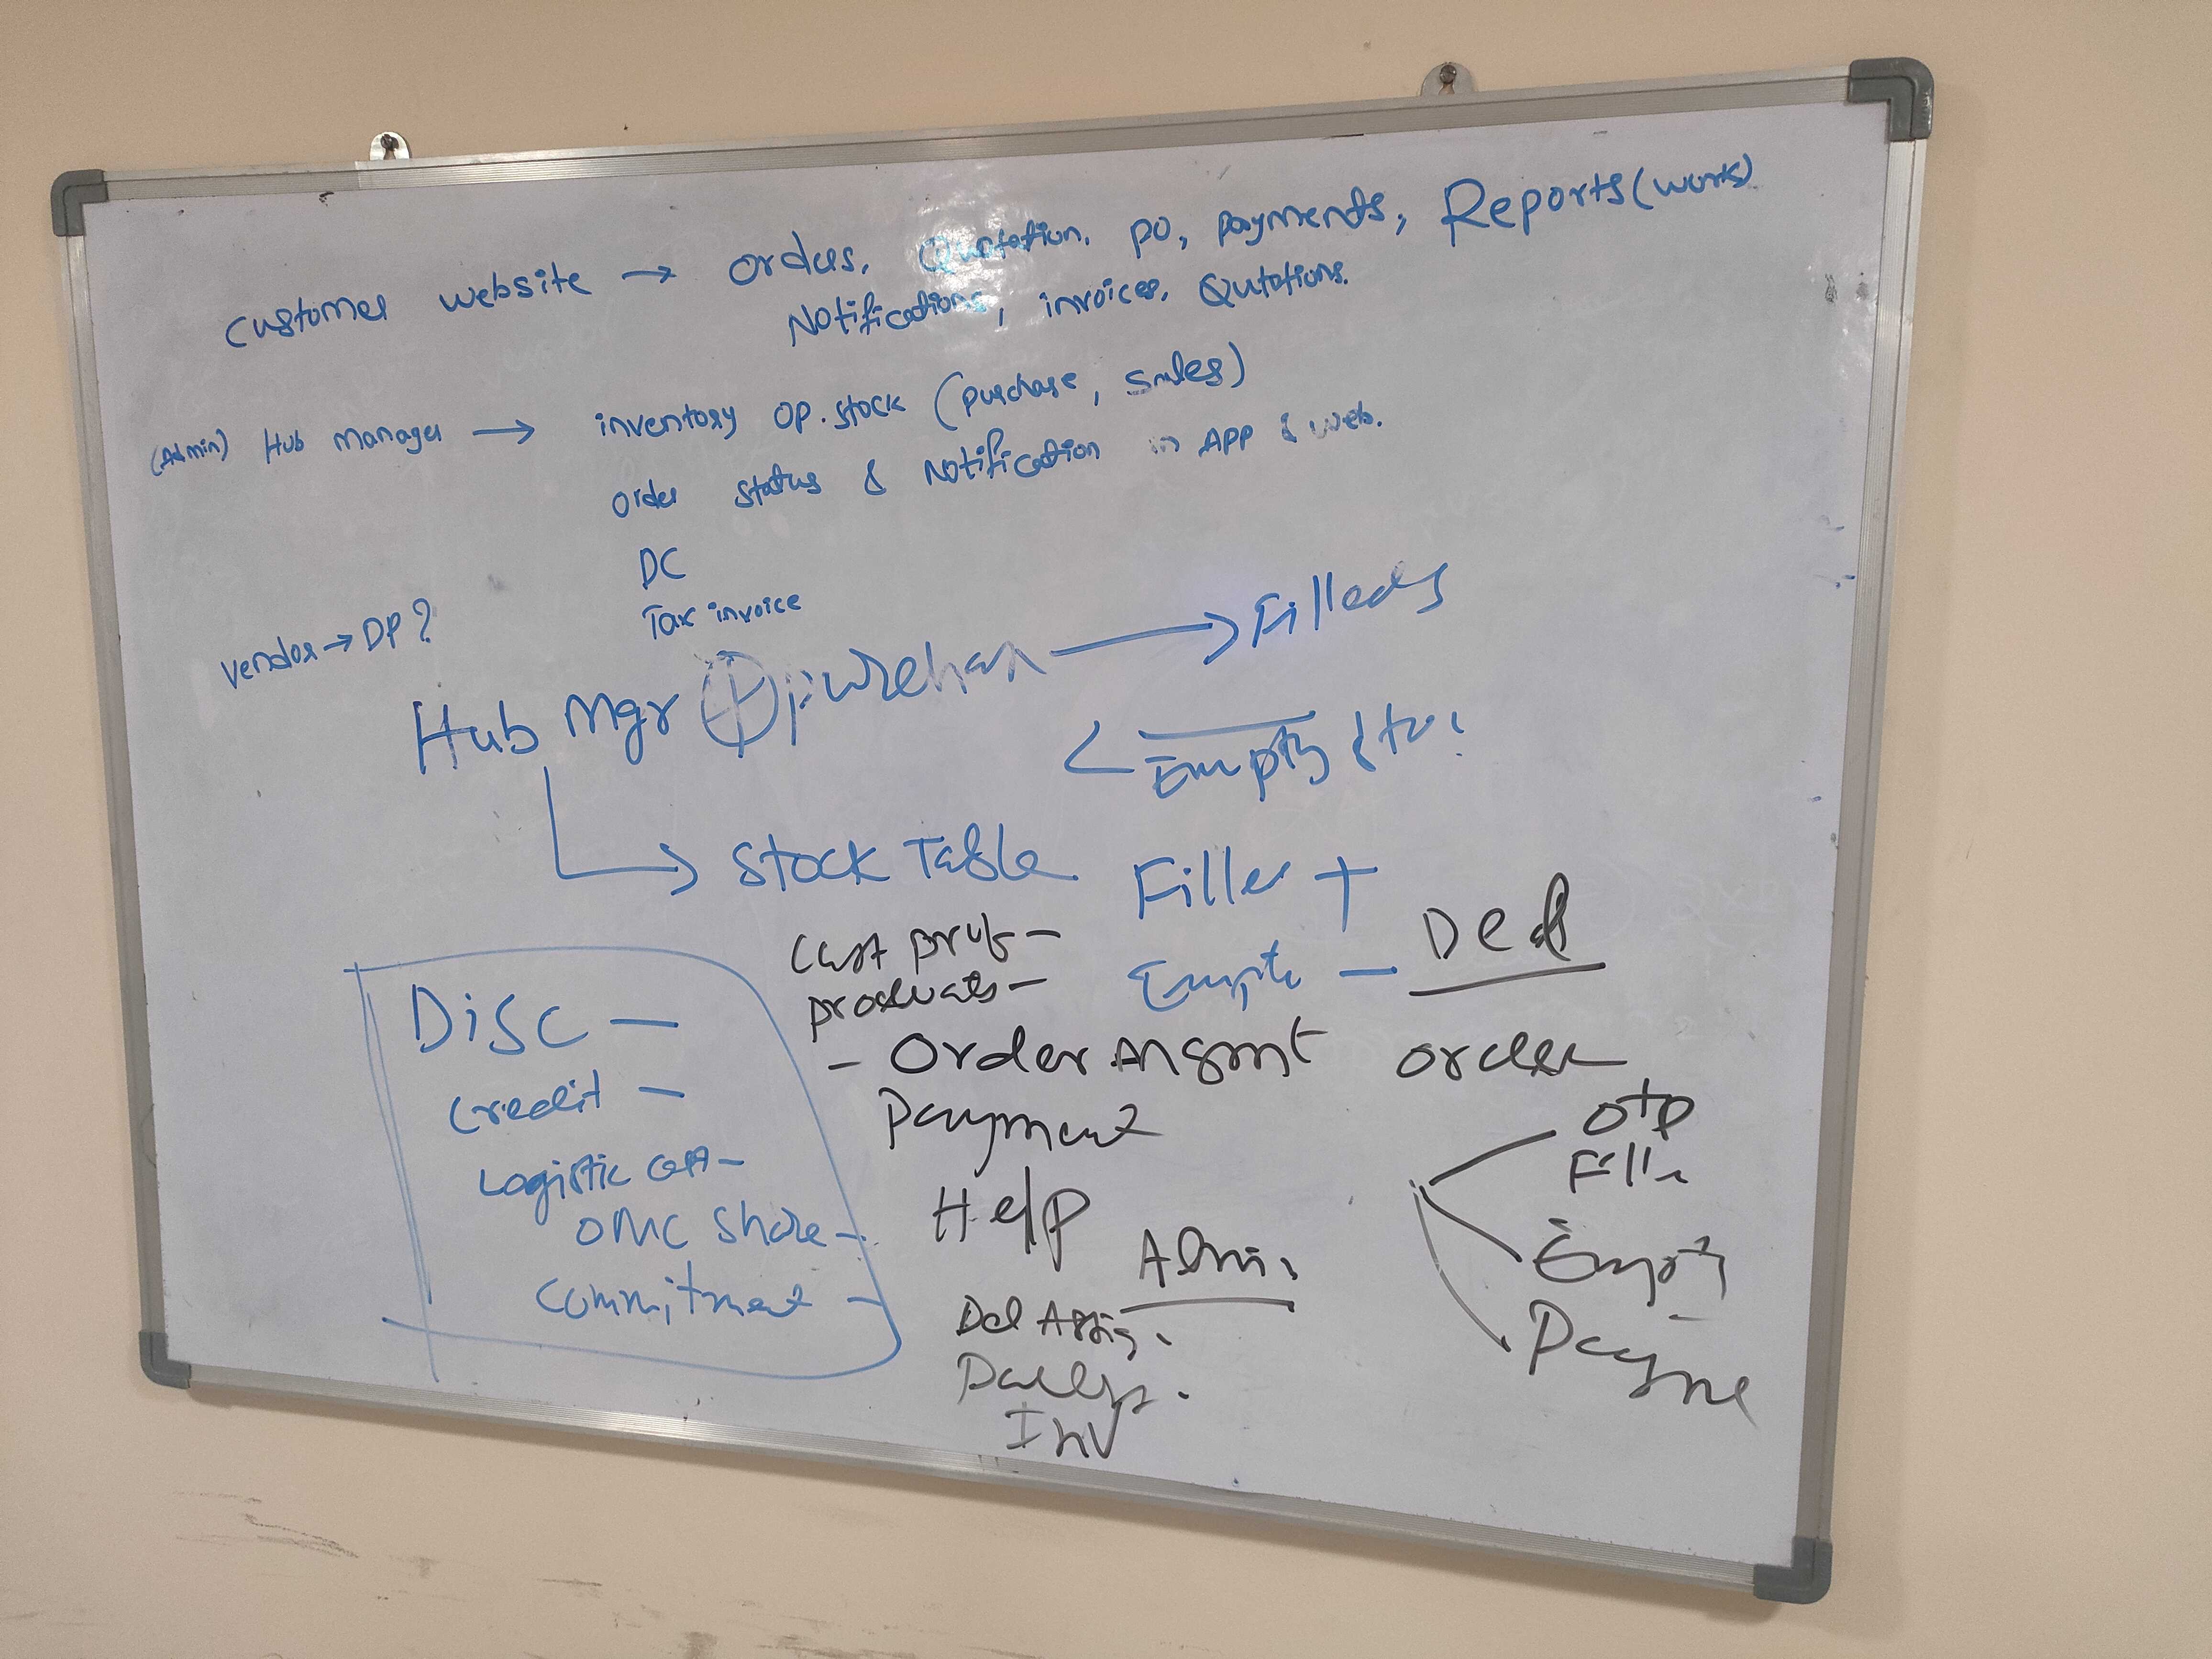 customer website → orders, Qutation, PO, payments, Reports (work)
Notifications, invoices, Qutations.
(Admin) Hub Manager → inventory op. stock (purchase, sales)
order status & Notification in APP & web.
DC
Tax invoice
vendor → DP?
Hub Mgr → Filleds
< Empty
→ Stock Table Filled +
Empty -
Disc -
Credit -
Logistic -
OMC Share -
Commitment -
Cust prof -
products -
- Order Mgmt
Payment
Help
Admin
Del Assig.
Inv
Del
order
OTP
Fille
Empty
Payme